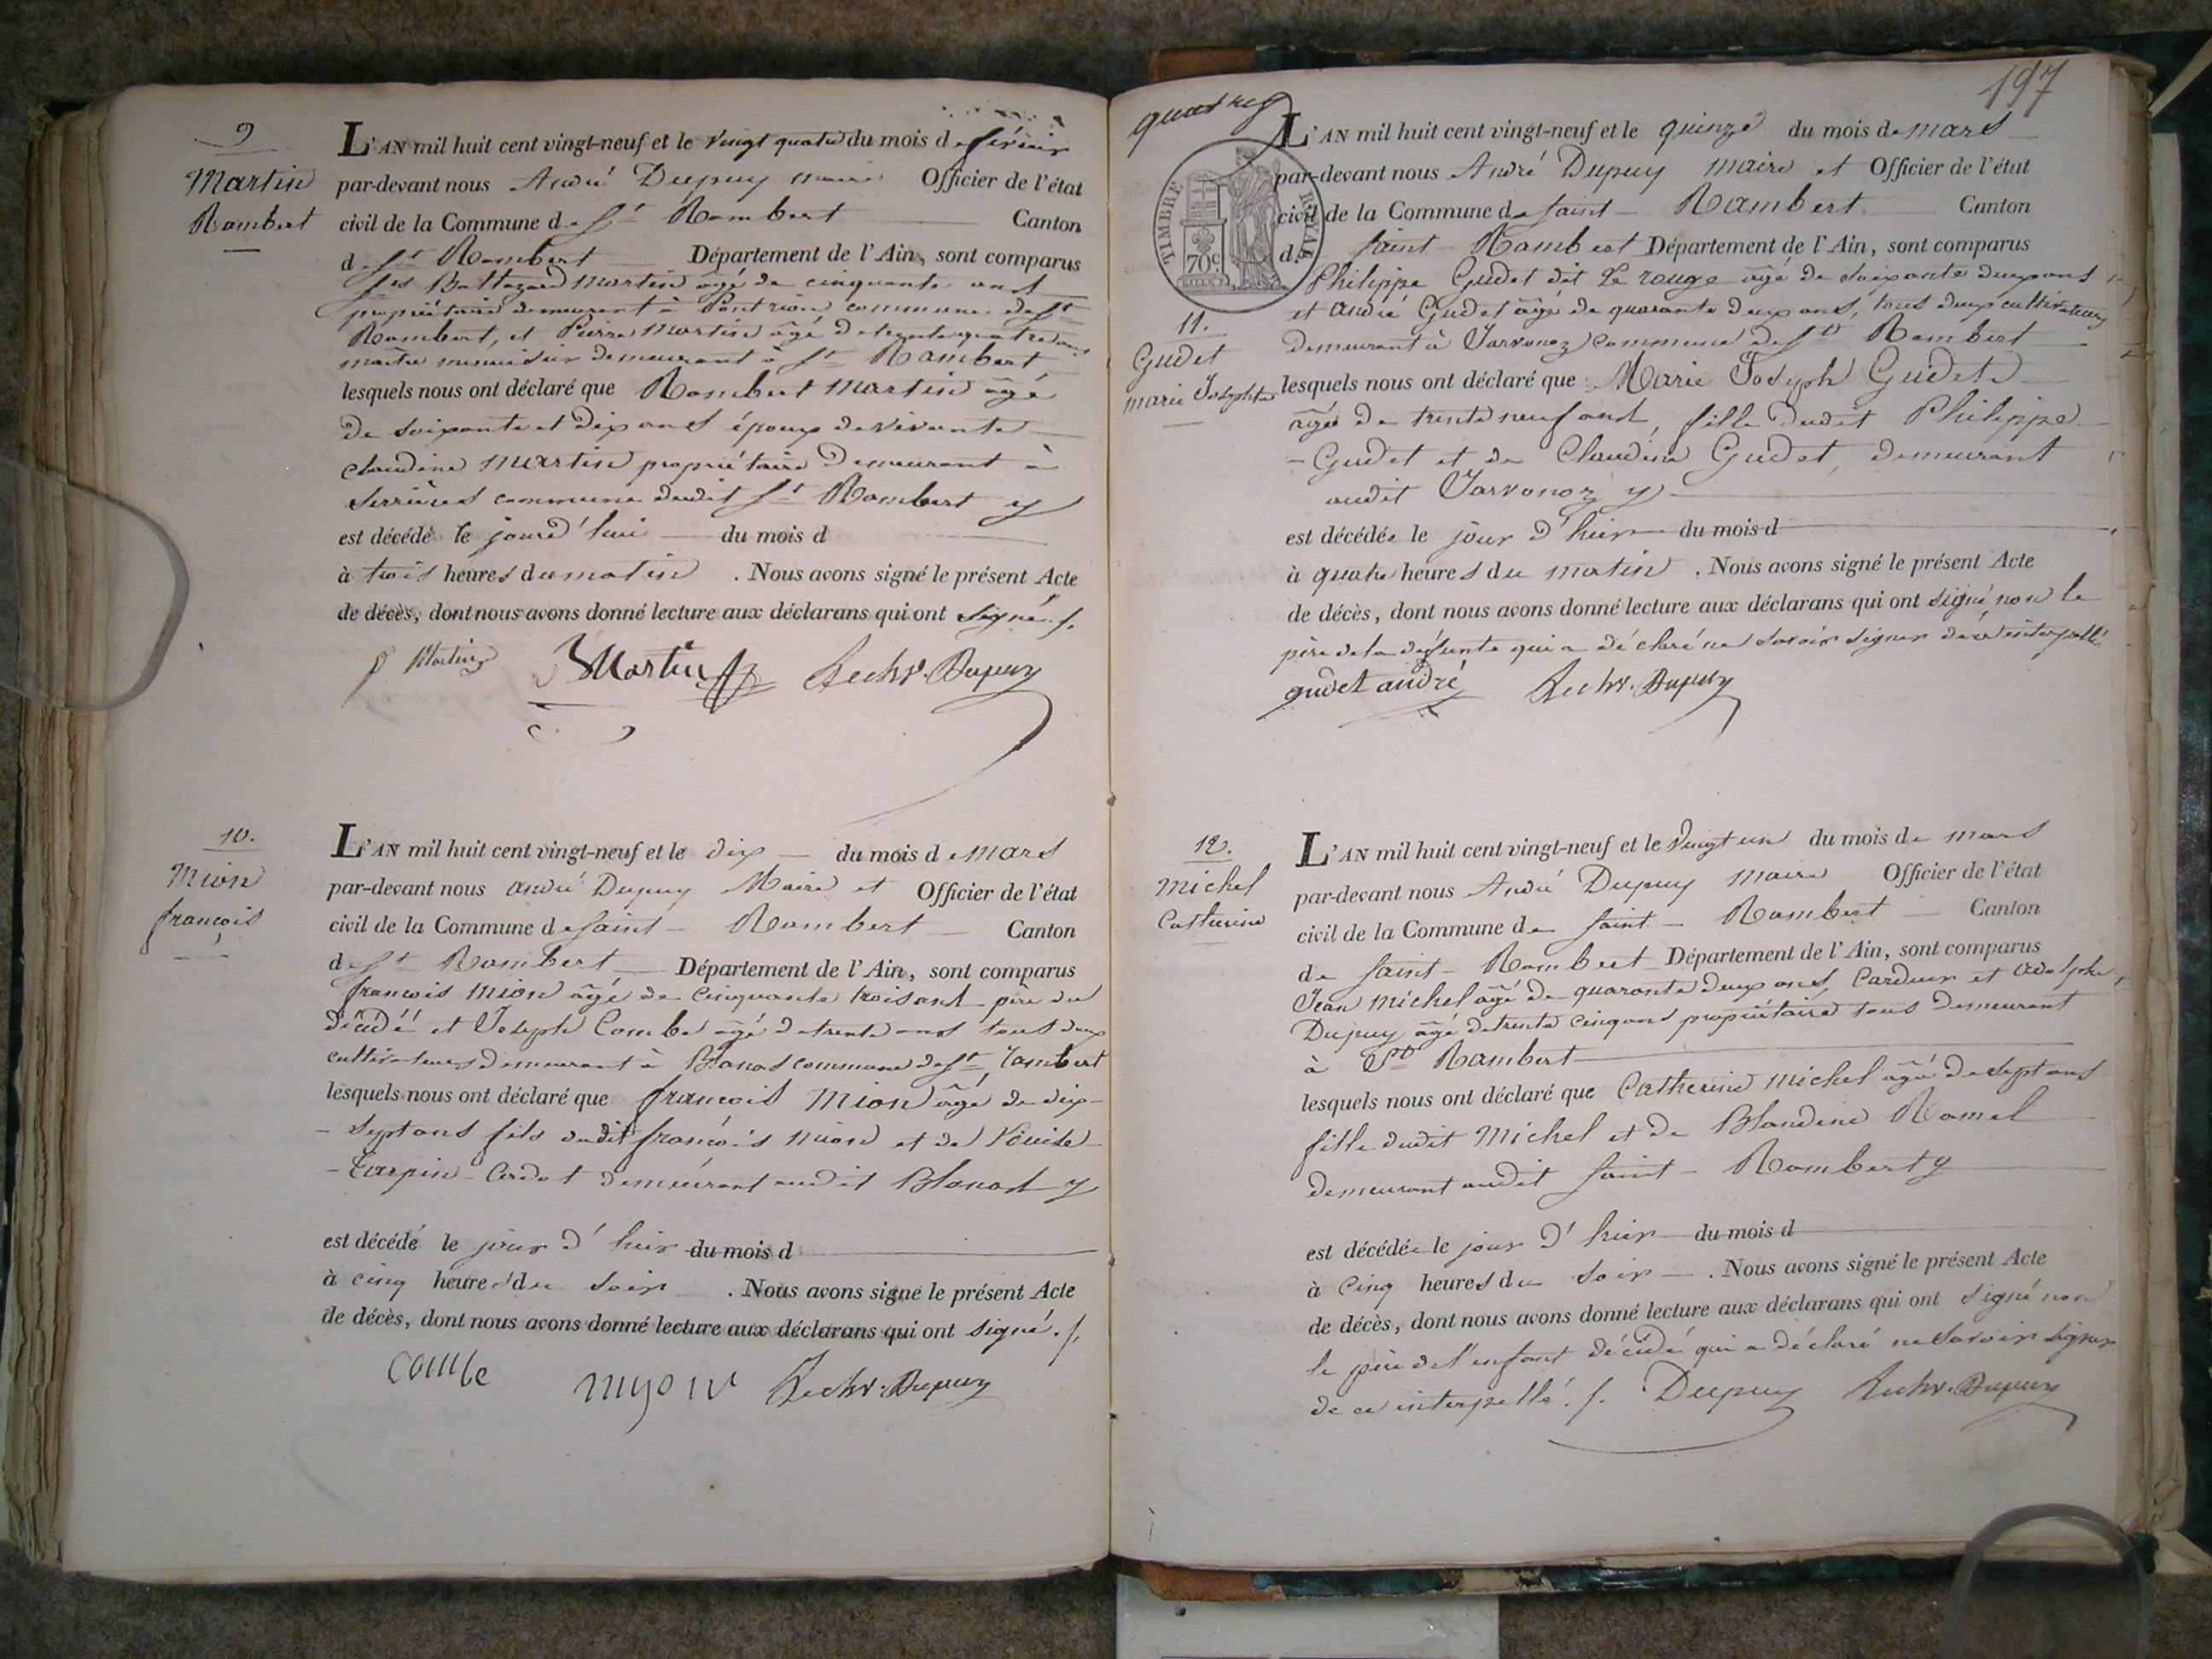 9
Martin
Rambert
L'AN mil huit cent vingt-neuf et le vingt quatre du mois de février
par-devant nous André Dupuy maire Officier de l'état
civil de la Commune de St Rambert Canton
de St Rambert Département de l'Ain, sont comparus
Balthazard Martin âgé de cinquante ans
propriétaire demeurant à commune de St
Rambert, et Pierre Martin âgé de trente quatre ans
maître menuisier demeurant à St Rambert
lesquels nous ont déclaré que Rambert Martin âgé
de soixante et dix ans époux de vivante
claudine Martin propriétaire demeurant à
Serrières commune dudit St Rambert y
est décédé le jourd'hui du mois d
à trois heures du matin . Nous avons signé le présent Acte
de décès, dont nous avons donné lecture aux déclarans qui ont signé ./.
P Martin BMartin Dupuy
10.
Mion
françois
L'AN mil huit cent vingt-neuf et le dix du mois de mars
par-devant nous andré Dupuy Maire et Officier de l'état
civil de la Commune de saint - Rambert Canton
de St Rambert Département de l'Ain, sont comparus
francois Mion âgé de cinquante trois ans père du
décédé et Joseph Combe âgé de trente ans tous deux
cultivateurs demeurant à Blanas commune de St Rambert
lesquels nous ont déclaré que francois Mion âgé de dix-
- sept ans fils dudit françois mion et de Louise
- Tarpin - Cerdot demeurant audit Blanas y
est décédé le jour d'hier du mois d
à cinq heures du soir . Nous avons signé le présent Acte
de décès, dont nous avons donné lecture aux déclarans qui ont signé ./.
combe myon Dupuy
197
quatre
TIMBRE ROYAL
70c
11.
Gudet
marie Josephte
L'AN mil huit cent vingt-neuf et le quinze du mois de mars
par-devant nous André Dupuy maire et Officier de l'état
civil de la Commune de saint - Rambert Canton
de saint - Rambert Département de l'Ain, sont comparus
Philippe Gudet dit Le rouge âgé de soixante deux ans
et André Gudet âgé de quarante deux ans, tous deux cultivateurs
demeurant à Javornoz commune de St Rambert
lesquels nous ont déclaré que Marie Joseph Gudet
âgée de trente neuf ans, fille dudit Philippe
- Gudet et de Claudine Gudet, demeurant
audit Javornoz y
est décédée le jour d'hier du mois d
à quatre heures du matin . Nous avons signé le présent Acte
de décès, dont nous avons donné lecture aux déclarans qui ont signé non le
père de la défunte qui a déclaré ne savoir signer de ce interpellé
gudet andré Dupuy
12.
Michel
Catherine
L'AN mil huit cent vingt-neuf et le vingt un du mois de mars
par-devant nous André Dupuy maire Officier de l'état
civil de la Commune de saint - Rambert Canton
de saint - Rambert Département de l'Ain, sont comparus
Jean Michel âgé de quarante deux ans, Cardeur et adolphe
Dupuy âgé de trente cinq ans propriétaire tous demeurant
à St Rambert
lesquels nous ont déclaré que Catherine Michel âgée de sept ans
fille dudit Michel et de Blandine Ramel
demeurant audit saint - Rambert y
est décédée le jour d'hier du mois d
à cinq heures du soir . Nous avons signé le présent Acte
de décès, dont nous avons donné lecture aux déclarans qui ont signé non
le père de l'enfant décédé qui a déclaré ne savoir signer
de ce interpellé ./. Dupuy Dupuy